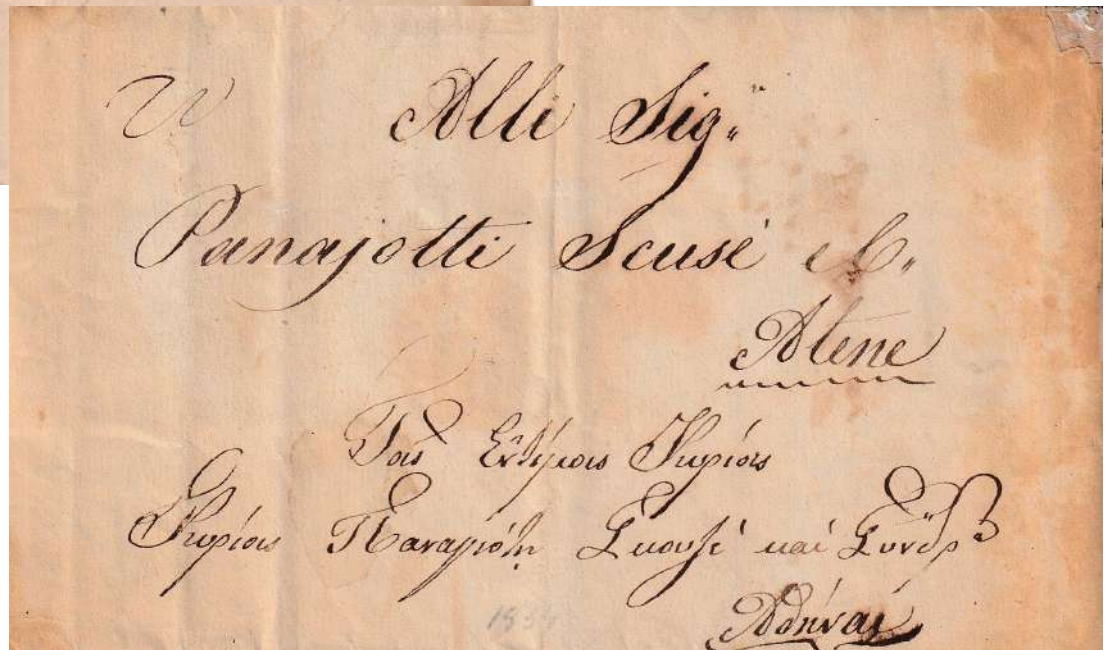 Alli Sig.ri
Panajotti Scusé e C.
Atene
Τοις Εντίμοις Κυρίοις
Κυρίοις Παναγιότη Σκουζέ και Συντρ
Αθήναι